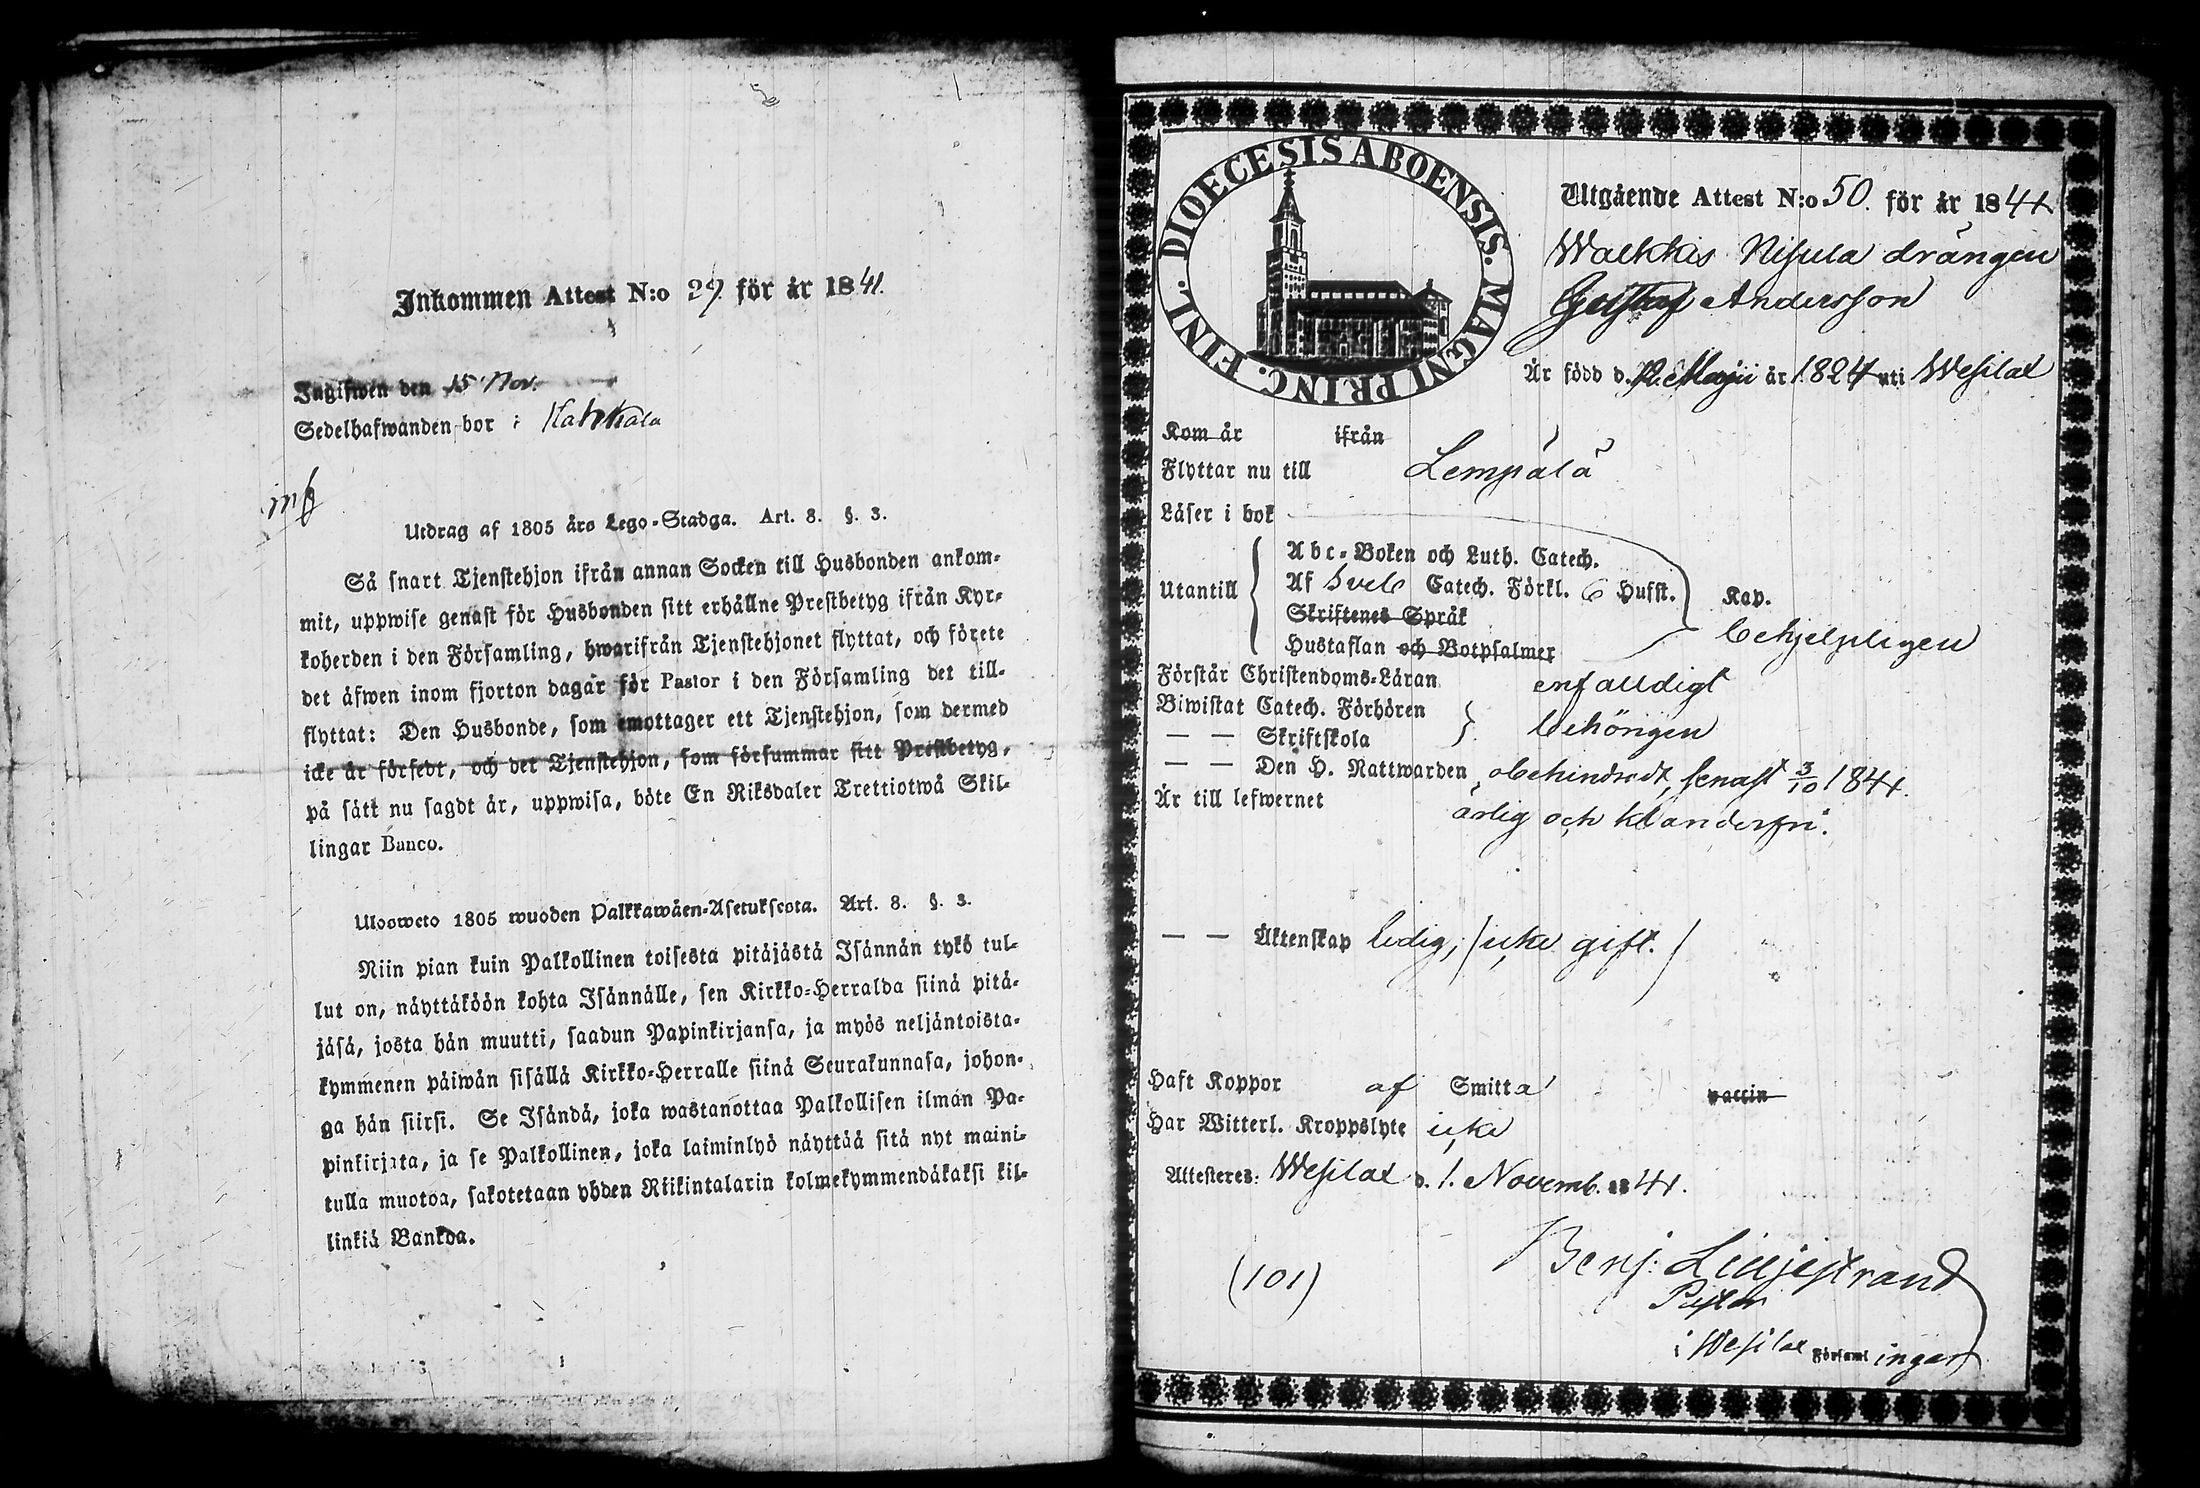 Inkommen Attest N:o 29. för år 1841.
Ingifwen den 15 Nov.
Sedelhafwanden bor i Kahkala
inf
Utdrag af 1805 års Lego-Stadga. Art. 8. §. 3.
Så snart Tjenstehjon ifrån annan Socken till Husbonden ankom-
mit, uppwise genast för Husbonden sitt erhållne Prestbetyg ifrån Kyr-
koherden i den Församling, hwarifrån Tjenstehjonet flyttat, och förete
det äfwen inom fjorton dagar för Pastor i den Församling det till-
flyttat: Den Husbonde, som emottager ett Tjenstehjon, som dermed
icke är försedt, och det Tjenstehjon, som försummar sitt Prestbetyg,
på sätt nu sagdt är, uppwisa, böte En Riksdaler Trettiotwå Skil-
lingar Banco.
Ulosweto 1805 wuoden Palkkawäen-Asetuksesta. Art. 8. §. 3.
Niin pian kuin Palkollinen toisesta pitäjästä Isännän tykö tul-
lut on, näyttäköön kohta Isännälle, sen Kirkko-Herralda siinä pitä-
jäsä, josta hän muutti, saadun Papinkirjansa, ja myös neljäntoista-
kymmenen päiwän sisällä Kirkko-Herralle siinä Seurakunnasa, johon-
ga hän siirsi. Se Isändä, joka wastanottaa Palkollisen ilman Pa-
pinkirjata, ja se Palkollinen, joka laiminlyö näyttää sitä nyt maini-
tulla muotoa, sakotetaan yhden Riikintalarin kolmekymmendäkaksi kil-
linkiä Bankoa.
DIOECESIS ABOENSIS. MAGNI PRINC. FINL.
Utgående Attest N:o 50. för år 1841
Walkkis Nisula drängen
Gustaf Andersson
Är född d. 12. Maji år 1824 uti Wesilax
Kom år ifrån
Flyttar nu till Lempälä
Läser i bok
Abc-Boken och Luth. Catech.
Utantill Af Sveb Catech. Förkl. 6 Hufst. Kap.
Skriftenes Språk
Hustaflan och Botpsalmer behjelpligen
Förstår Christendoms-Läran enfaldigt
Biwistat Catech. Förhören
— — Skriftskola behörigen
— — Den H. Nattwarden obehindradt, senast 3/10 1841.
Är till lefwernet ärlig och klanderfri.
— — Äktenskap ledig, (icke gift.)
Haft Koppor af Smitta vaccin
Har Witterl. Kroppslyte icke
Attesteres: Wesilax d. 1. Novemb. 1841.
Benj: Liljestrand
Pastor
(101)
i Wesilax Församlingar